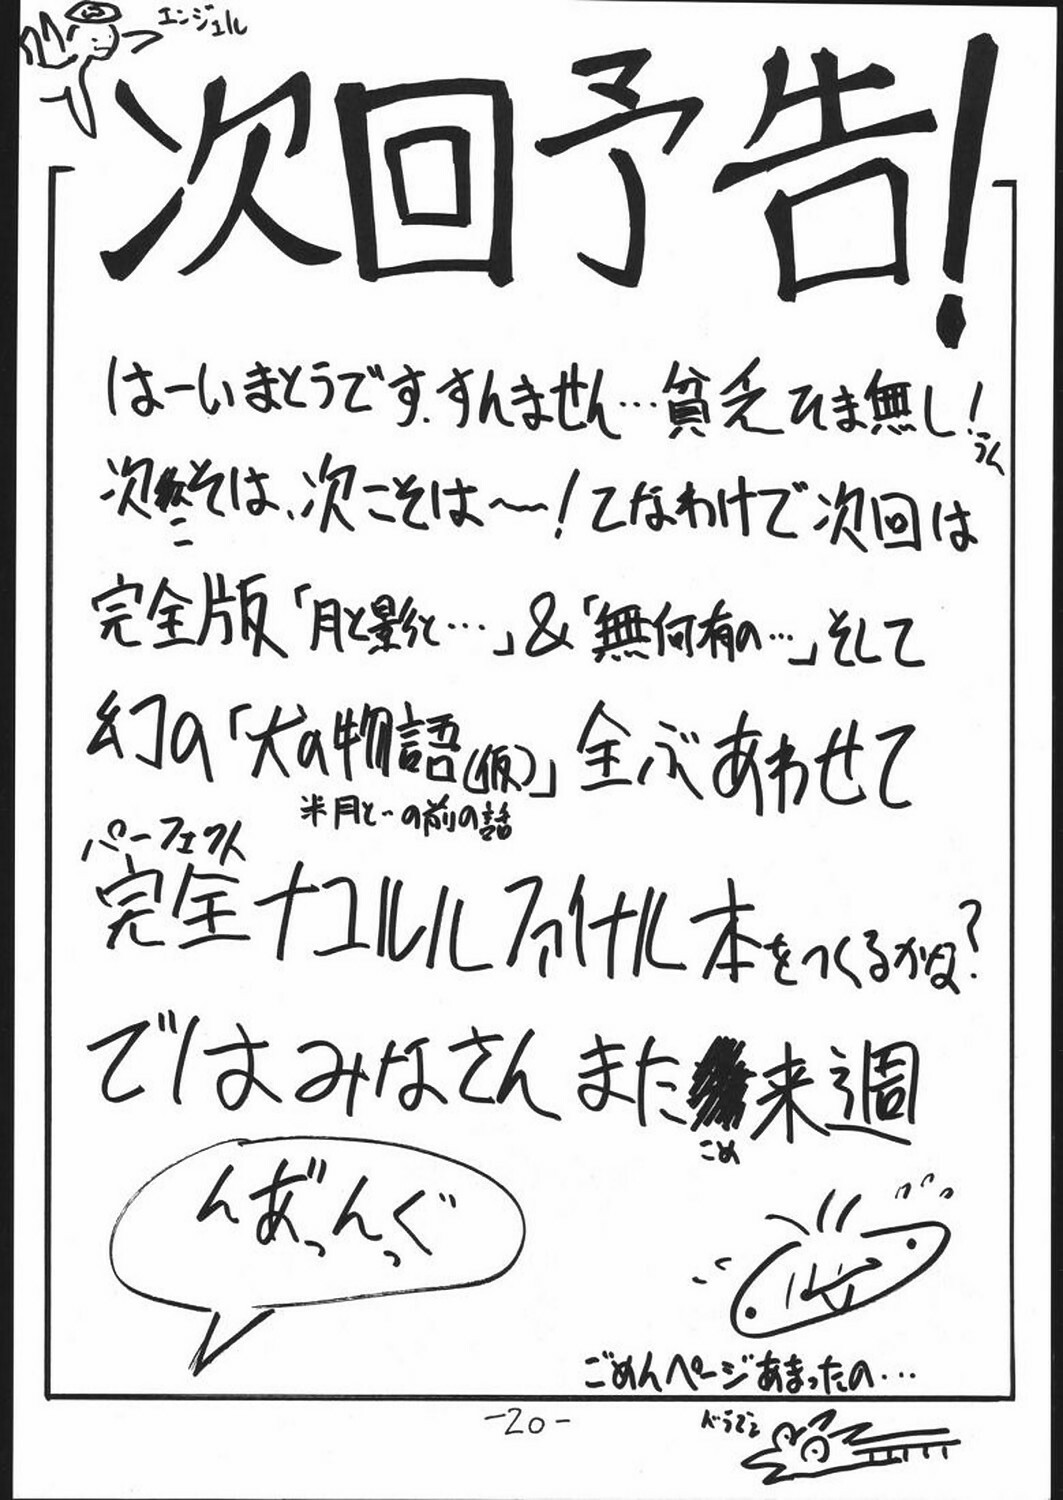 エンジェル
次回予告!
はーいまとうです、すんません…貧乏ひま無し!
うん
次こそは、次こそは〜!てなわけで次回は
完全版「月と影と…」&「無何有の…」そして
幻の「犬の物語(仮)」全ぶあわせて
※月と‥の前の話
パーフェクト
完全ナコルルファイナル本をつくるかな?
ではみなさんまた来週
ごめ
んがっんっぐ
ごめんページあまったの…
-20-